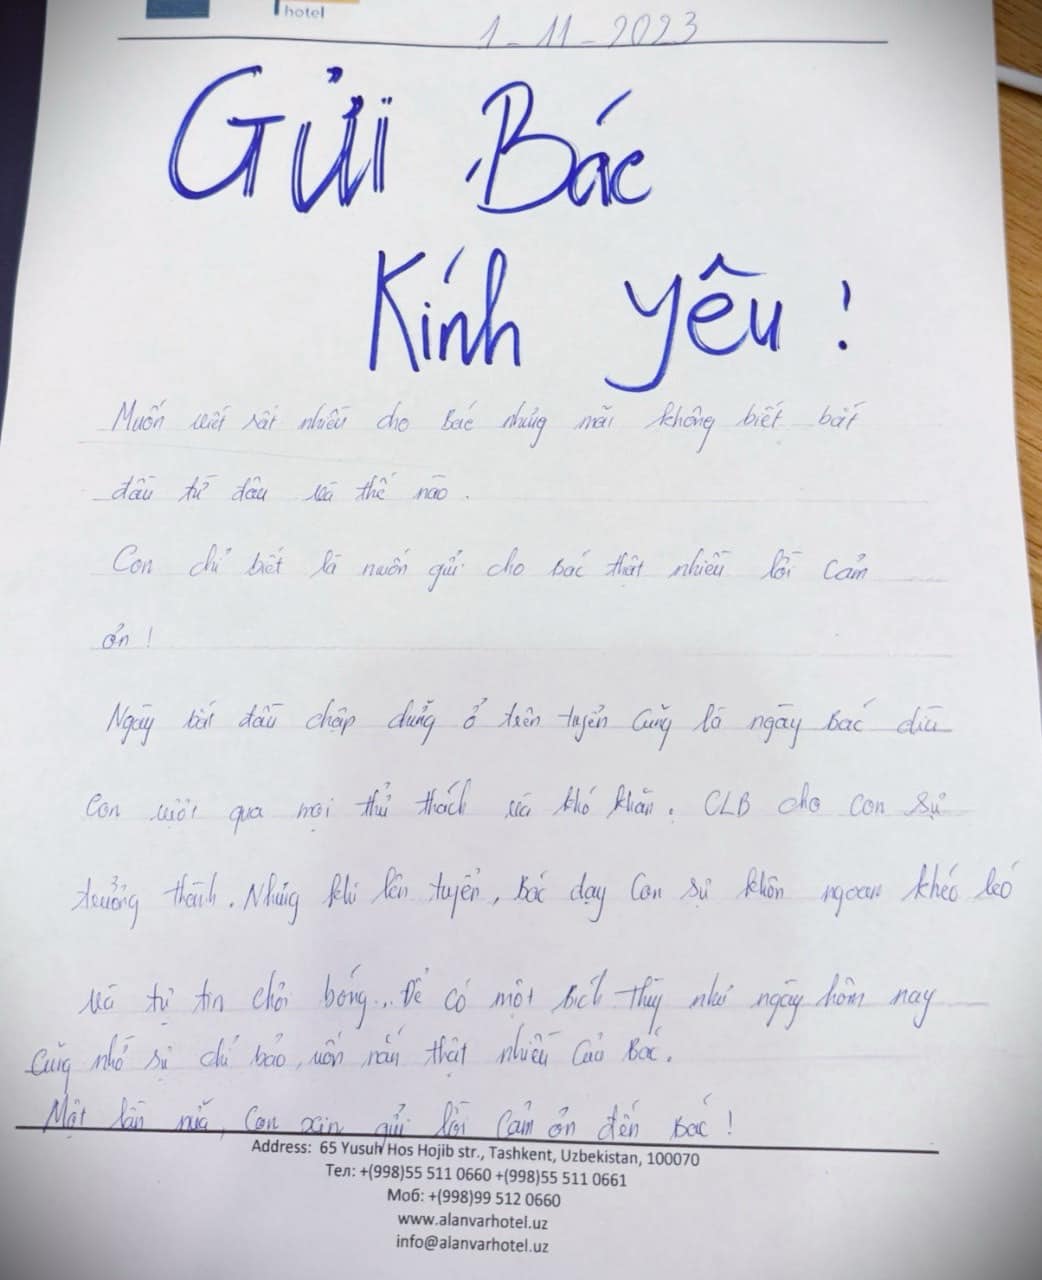 hotel
1-11-2023
GỬI BÁC
KÍNH YÊU!
Muốn viết rất nhiều cho Bác nhưng mãi không biết bắt
đầu từ đâu và thế nào.
Con chỉ biết là muốn gửi cho bác thật nhiều lời cảm
ơn!
Ngày bắt đầu chập chững ở trên tuyển cũng là ngày Bác dìu
Con vượt qua mọi thử thách và khó khăn. CLB cho con sự
trưởng thành. Nhưng khi lên tuyển, Bác dạy Con sự khôn ngoan khéo léo
và tự tin chơi bóng... Để có một Bích Thùy như ngày hôm nay
Cũng nhờ sự chỉ bảo, uốn nắn thật nhiều Của Bác.
Một lần nữa, Con xin gửi lời Cảm ơn đến Bác!
Address: 65 Yusuh Hos Hojib str., Tashkent, Uzbekistan, 100070
Тел: +(998)55 511 0660 +(998)55 511 0661
Моб: +(998)99 512 0660
www.alanvarhotel.uz
info@alanvarhotel.uz